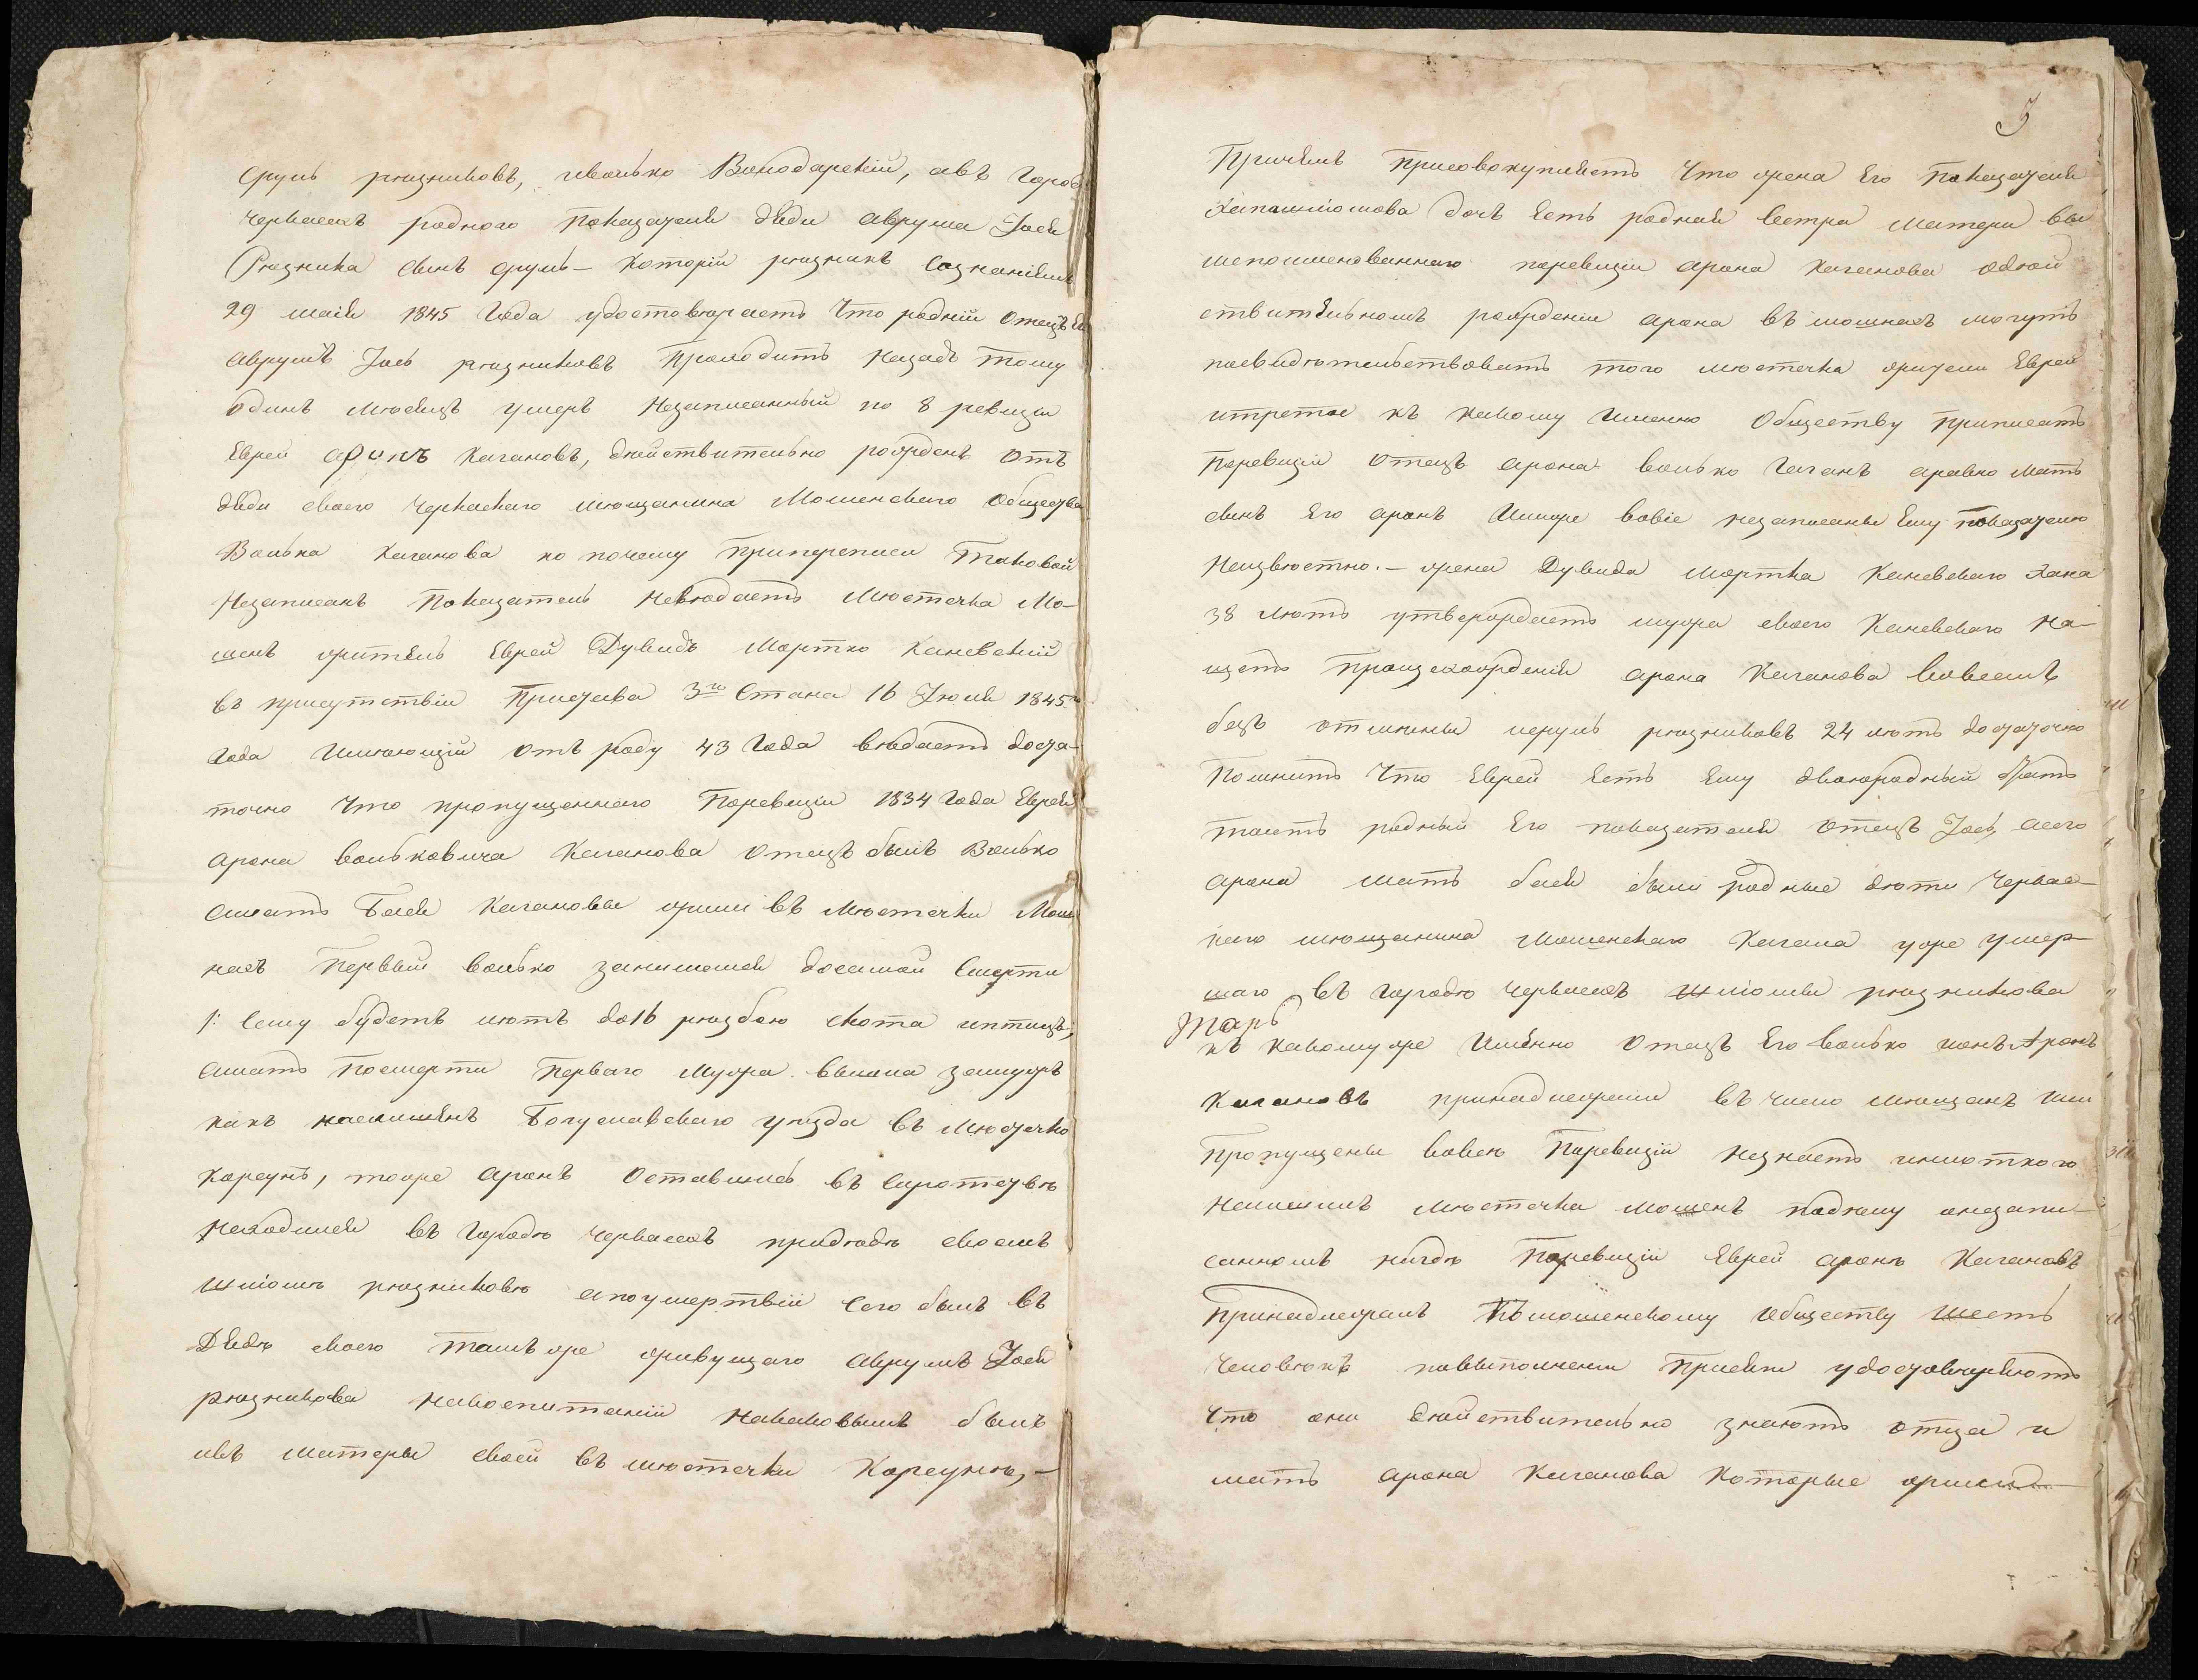 Сруль рѣзниковъ, иволько Винодарскій, авъ Город
Черкасахъ родного показателя дяди Аврума Іося
Рѣзника сынъ Сруль – который рѣзникъ сознаніемъ
29 маія 1845 года удостовѣряетъ Что родній Отецъ Ев
Аврумъ Іось рѣзниковъ проходитъ назадъ тому
Одинъ мѣсяцъ умеръ Незаписанный по 8 ревизіи
Еврей Аронъ Кагановъ, дѣйствительно рожденъ Отъ
дяди своего Черкаскаго мѣщанина Мошенскаго Общества
Волька Каганова но почему приперепеси таковой
Незаписанъ Показатель Невѣдаетъ Мѣстечка Мо-
шенъ житель Еврей Дувидъ Мортко Каневскій
въ присутствіи Пристава 3го Стана 16 Іюля 1845го
года Имѣющій отъ роду 43 Года вѣдаетъ доста-
точно Что пропущеннаго Паревизіи 1834 Года Еврея
Арона вольковича Каганова Отецъ былъ Волько
амать Бася Кагановы жили въ Мѣстечки Мош
нахъ Первый волько занимался досамой Смерти
/: Сему будетъ лѣтъ до16 рѣзбою скота иптицъ,
амать Посмерти Перваго Мужа вышла замужъ
какъ Богуславскаго уѣзда въ Мѣстечко
Корсунь, тоже Аронъ Оставшись въ Сиротствѣ
Находился въ Городѣ Черкасахъ придядѣ своемъ
Шліомѣ рѣзниковѣ апоумертвіи Сего былъ въ
Дядѣ своего тамъ же живущаго Аврумъ Іося
рѣзникова Навоспитаніи Накаковымъ былъ
матеры своей въ мѣстечки Корсунѣ, –
5
Причемъ Присовокупляетъ Что жена Его Показателя
Хапашліомова дочь Есть родная Сестра матери вы
шепоименованнаго паревизіи Арона Каганова одѣй
ствительномъ рожденіи Арона въ мошнахъ могутъ
посвидѣтельствовать того мѣстечка жители Евреи
итретое къ какому Именно Обществу приписанъ
Паревизіи Отецъ Арона волько Каганъ аравно мать
сынъ Его Аронъ Иниже вовсе незаписаны Ему показателю
Неизвѣстно. – жена Дувида Мортка Каневскаго Хана
38 лѣтъ утверждаетъ мужа своего Каневскаго на-
щетъ Арона Каганова Вовсемъ
безъ отмѣны исруль рѣзниковъ 24 лѣтъ достаточно
Помнитъ Что Еврей Есть Ему двоюродный братъ
таить родный Его показателя Отецъ Іось, аего
Арона мать бася были родные дѣти Черкас-
каго мѣщанина Мошенскаго Кагала уже умер-
шаго въ Городѣ Черкасахъ Шліомы рѣзникова
къ какомуже Имѣнно Отецъ Его волько ионъ Аронъ
Кагановъ принадлежали въ число мѣщанъ или
Пропущены вовсю Паревизіи Незнаетъ
мѣстечка Мошенъ подѣлу онезапи-
санномъ нигдѣ Паревизіи Еврей Аронъ Кагановъ
Принадлежалъ Къмошенскому Обществу шесть
Человѣкъ повыполненіи Присяги удостовѣряютъ
Что они Дѣйствительно знаютъ отца и
мать Арона Каганова Которые